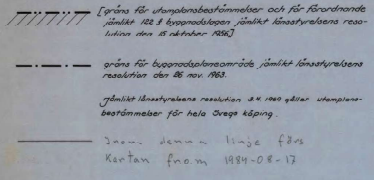 [gräns för utomplansbestämmelser och för förordnande
jämlikt 122 § byggnadslagen jämlikt länsstyrelsens reso-
lution den 15 oktober 1956]
gräns för byggnadsplaneområde jämlikt länsstyrelsens
resolution den 26 nov. 1963.
Jämlikt länsstyrelsens resolution 3.4 1969 gäller utomplans-
bestämmelser för hela Svegs köping.
Inom denna linje förs
Kartan fr.o.m 1984-08-17